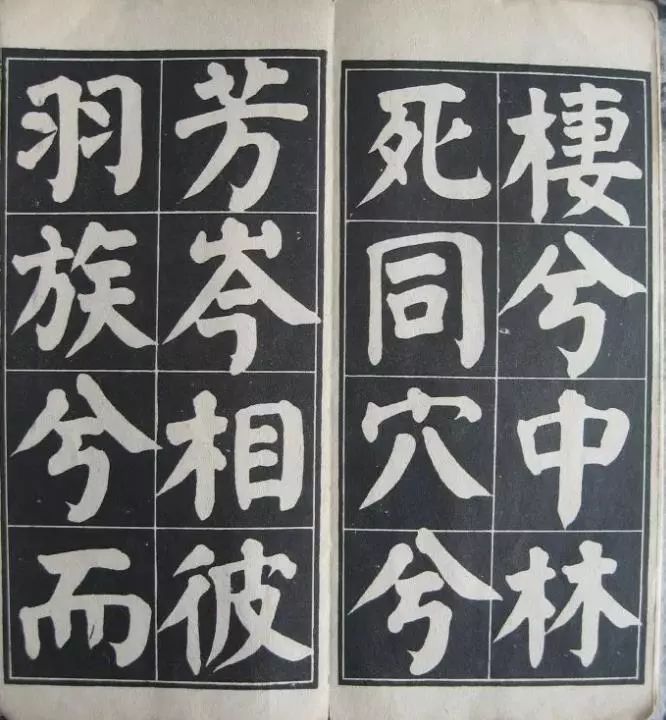 棲兮中林
死同穴兮
芳岑相彼
羽族兮而